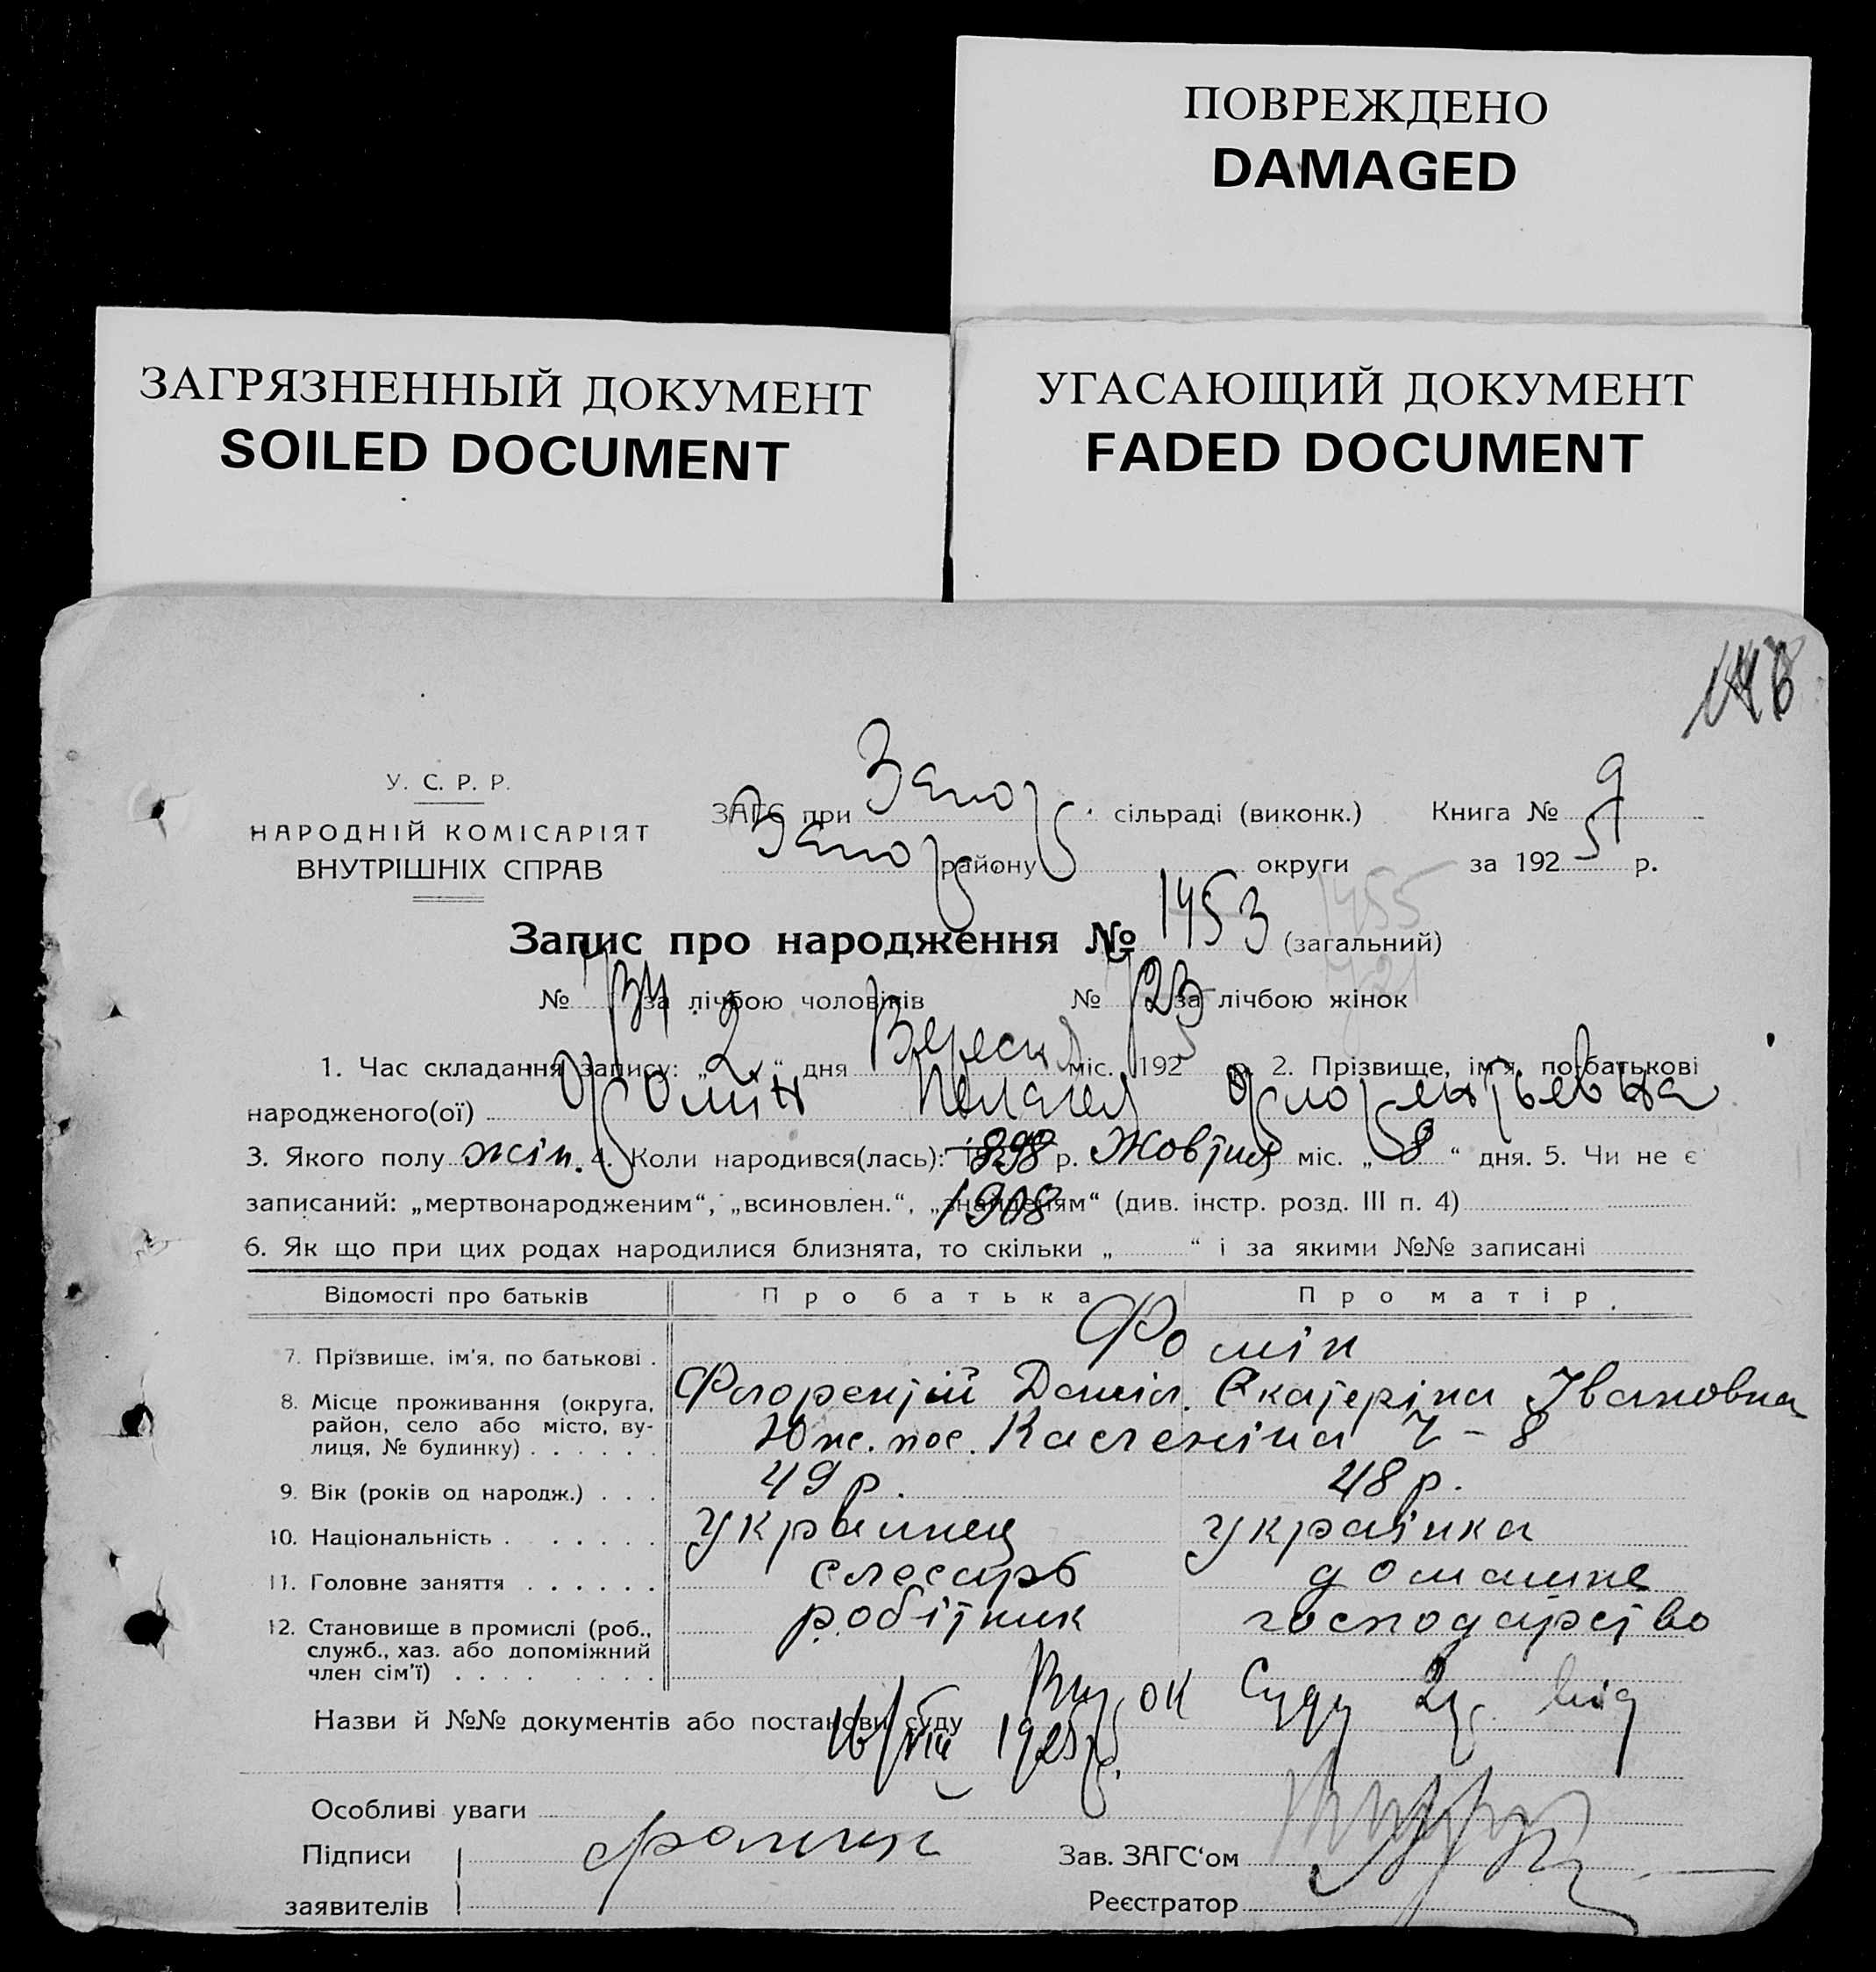 ПОВРЕЖДЕНО
DAMAGED
ЗАГРЯЗНЕННЫЙ ДОКУМЕНТ
SOILED DOCUMENT
УГАСАЮЩИЙ ДОКУМЕНТ
FADED DOCUMENT
У. С. Р. Р.
НАРОДНІЙ КОМІСАРІЯТ
ВНУТРІШНІХ СПРАВ
ЗАГС при Запор. сільраді (виконк.) Книга № 9
Запор. району округи за 1925 р.
Запис про народження № 1453 (загальний) 1455
№ 734 за лічбою чоловіків № 723 за лічбою жінок 721
1. Час складання запису: „2“ дня Вересня міс. 1925 р. 2. Прізвище, ім'я, по батькові
народженого(ої) Фомін Пелагея Флорентьевна
3. Якого полу жін. 4. Коли народився(лась): 1898 р. Жовтня міс. „8“ дня. 5. Чи не є
записаний: „мертвонародженим“, „всиновлен.“, „знайденям“ (див. інстр. розд. III п. 4)
1908
6. Як що при цих родах народилися близнята, то скільки „ “ і за якими №№ записані
Відомості про батьків Про батька Про матір.
7. Прізвище, ім'я, по батькові . Фомін
Флорентій Даніл. Екатеріна Івановна
8. Місце проживання (округа,
район, село або місто, ву-
лиця, № будинку) . . . . . . Юж. пос. 7 – 8
9. Вік (років од народж.) . . . 49 р. 48 р.
10. Національність . . . . . . украинец українка
11. Головне заняття . . . . . . слесарь домашне
12. Становище в промислі (роб.,
служб., хаз. або допоміжний
член сім'ї) . . . . . . . . робітник господарство
Назви й №№ документів або постанови суду Вирок Суду 2 від
16/VIII 1925 р.
Особливі уваги
Підписи
заявителів Фомин
Зав. ЗАГС'ом
Реєстратор